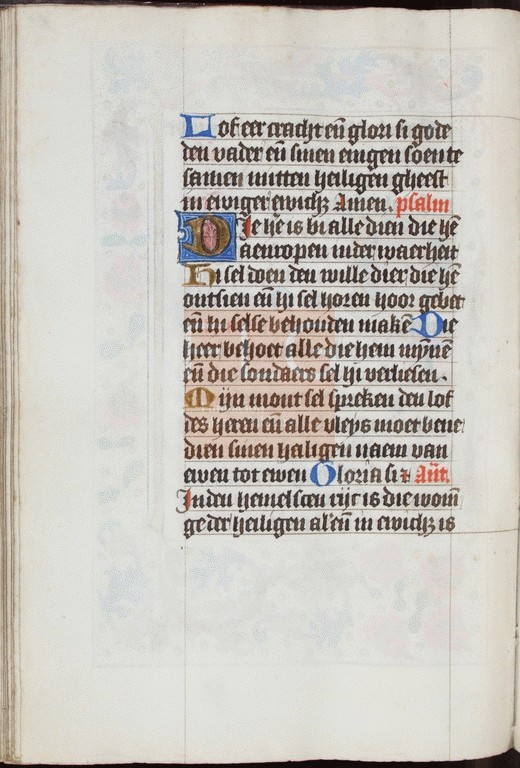 Lof eer cracht en̄ glori si gode
den vader en̄ sinen enigen soen te
samen mitten heiligen gheest
in ewiger ewichꝫ Amen. psalm
Die he is bi alle dien die hē
aenropen inder waerheit
Hi sel doen den wille dier die hē
ontsien en̄ hi sel horen hoor gebet
en̄ hi selse behouden makē Die
heer behoet alle die hem mȳnē
en̄ die sondaers sel hi verliesen.
Mijn mont sel spreken den lof
des heren en̄ alle vleys moet bene
dien sinen heiligen naem van
ewen tot ewen Gloria si Ant̄
In den hemelscen rijc is die wonī
ge der heiligen al en̄ in ewichꝫ is